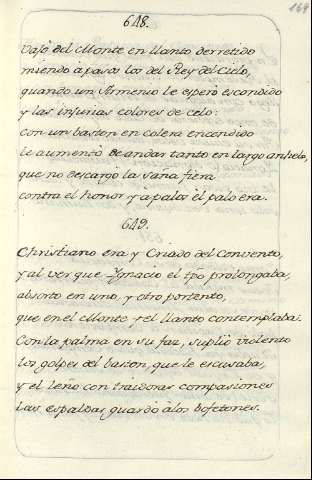 169
648.
Vajò del Monte en llanto derretido
miendo à pasos los del Rey del Cielo,
quando un Armenio le esperò escondido
y las injurias colores de celo:
con un baston en colera encendido
le aumentò de andar tanto en largo anhelo,
que no descargò la saña fiera
contra el honor y à palos èl palo era.
649.
Christiano era y Criado del Convento,
y al ver que Ygnacio el tpō prolongaba,
absorto en uno y otro portento,
que en el Monte y el llanto contemplaba.
Con la palma en su faz, suplio violento
los golpes del baston, que le escusaba,
y el leño con traidoras compasiones
las espaldas guardò à los bofetones.